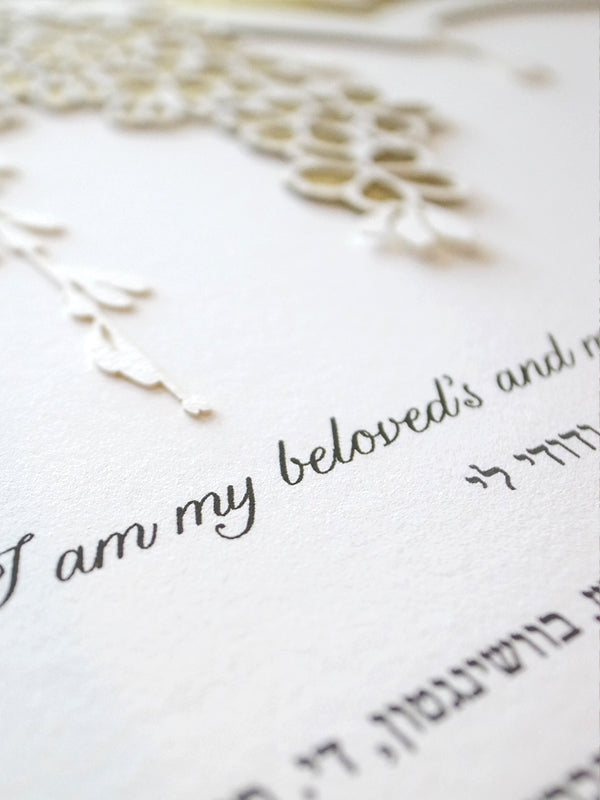 I am my beloved's and
ודודי לי
בוושינגטון, די.